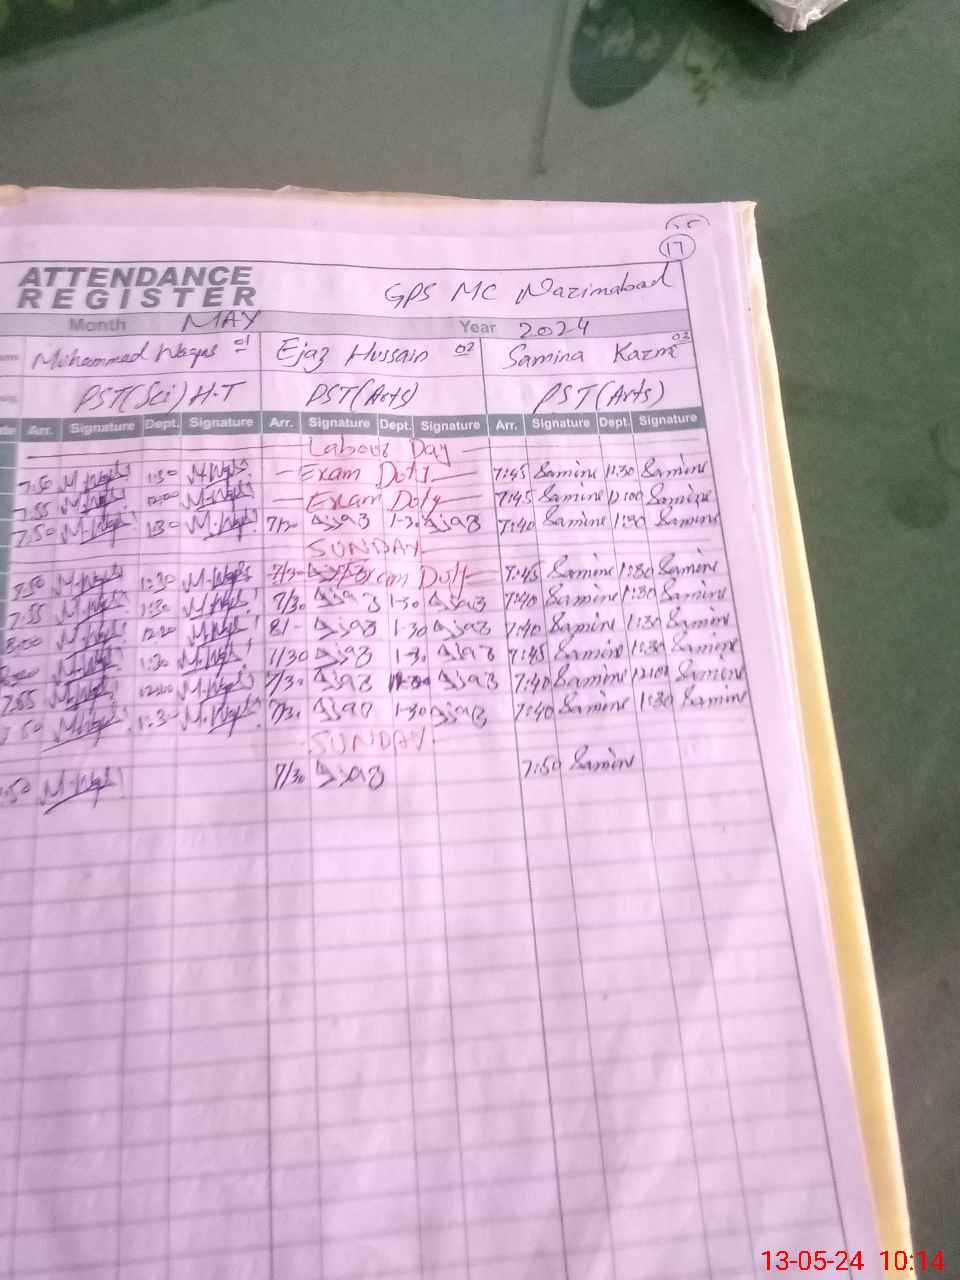 17
ATTENDANCE
REGISTER
GPS MC Nazimabad
Month MAY Year 2024
Mohammad Waqas 01 Ejaz Hussain 02 Samina Kazmi 03
PST(Sci) H.T PST(Arts) PST(Arts)
Arr. Signature Dept. Signature Arr. Signature Dept. Signature Arr. Signature Dept. Signature
Labour Day
7:50 M.Waqas 1:30 M.Waqas Exam Duty 7:45 Samina 11:30 Samina
7:55 M.Waqas 12:00 M.Waqas Exam Duty 7:45 Samina 12:00 Samina
7:50 M.Waqas 1:30 M.Waqas Ajaz 1-30 Ajaz 7:40 Samina 1:30 Samina
SUNDAY
7:50 M.Waqas 1:30 M.Waqas Exam Duty 7:45 Samina 1:30 Samina
7:55 M.Waqas 1:30 M.Waqas 7/30 Ajaz 1-30 Ajaz 7:40 Samina 1:30 Samina
8:00 M.Waqas 12:20 M.Waqas 8/- Ajaz 1-30 Ajaz 7:40 Samina 1:30 Samina
M.Waqas 1:30 M.Waqas Ajaz 1-30 Ajaz 7:45 Samina 1:30 Samina
7:55 M.Waqas 12:00 M.Waqas 7/30 Ajaz Ajaz 7:40 Samina Samina
7:50 M.Waqas 1:30 M.Waqas 7/30 Ajaz 1-30 Ajaz 7:40 Samina 1:30 Samina
SUNDAY
7:50 M.Waqas 7/30 Ajaz 7:50 Samina
13-05-24 10:14